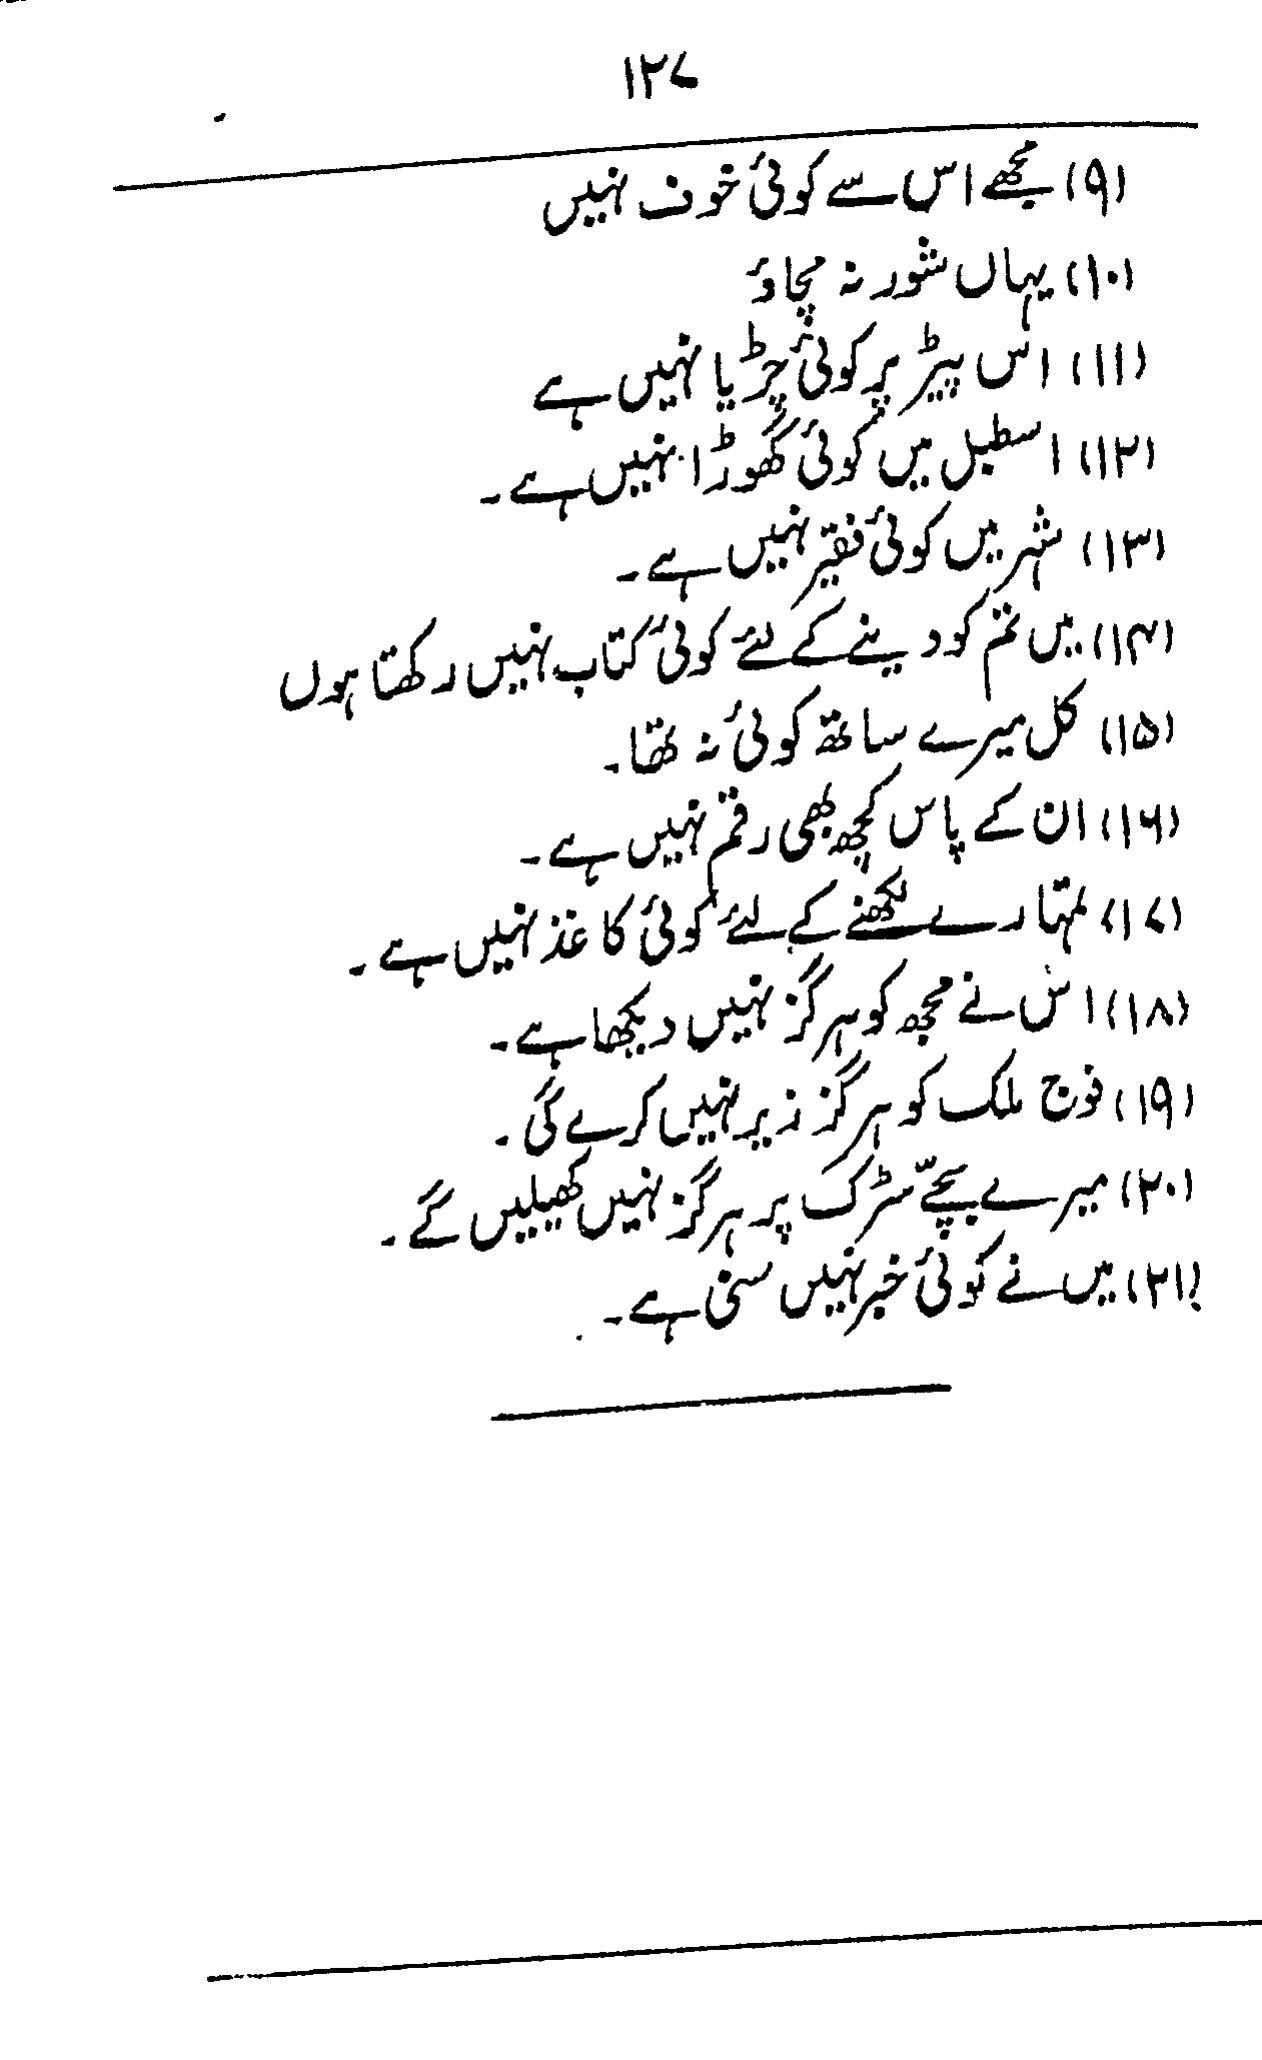 ۱۲۷
(۹) مجھے اس سے کوئی خوف نہیں
(۱۰) یہاں شور نہ مچاؤ
(۱۱) اس پیڑ پر کوئی چڑیا نہیں ہے
(۱۲) اسطبل میں کوئی گھوڑا نہیں ہے۔
(۱۳) شہر میں کوئی فقیر نہیں ہے۔
(۱۴) میں تم کو دینے کے لئے کوئی کتاب نہیں رکھتا ہوں
(۱۵) کل میرے ساتھ کوئی نہ تھا۔
(۱۶) ان کے پاس کچھ بھی رقم نہیں ہے۔
(۱۷) تمہارے لکھنے کے لئے کوئی کاغذ نہیں ہے۔
(۱۸) اس نے مجھ کو ہرگز نہیں دیکھا ہے۔
(۱۹) فوج ملک کو ہرگز زیر نہیں کرے گی۔
(۲۰) میرے بچّے سڑک پر ہرگز نہیں کھیلیں گے۔
(۲۱) میں نے کوئی خبر نہیں سنی ہے۔